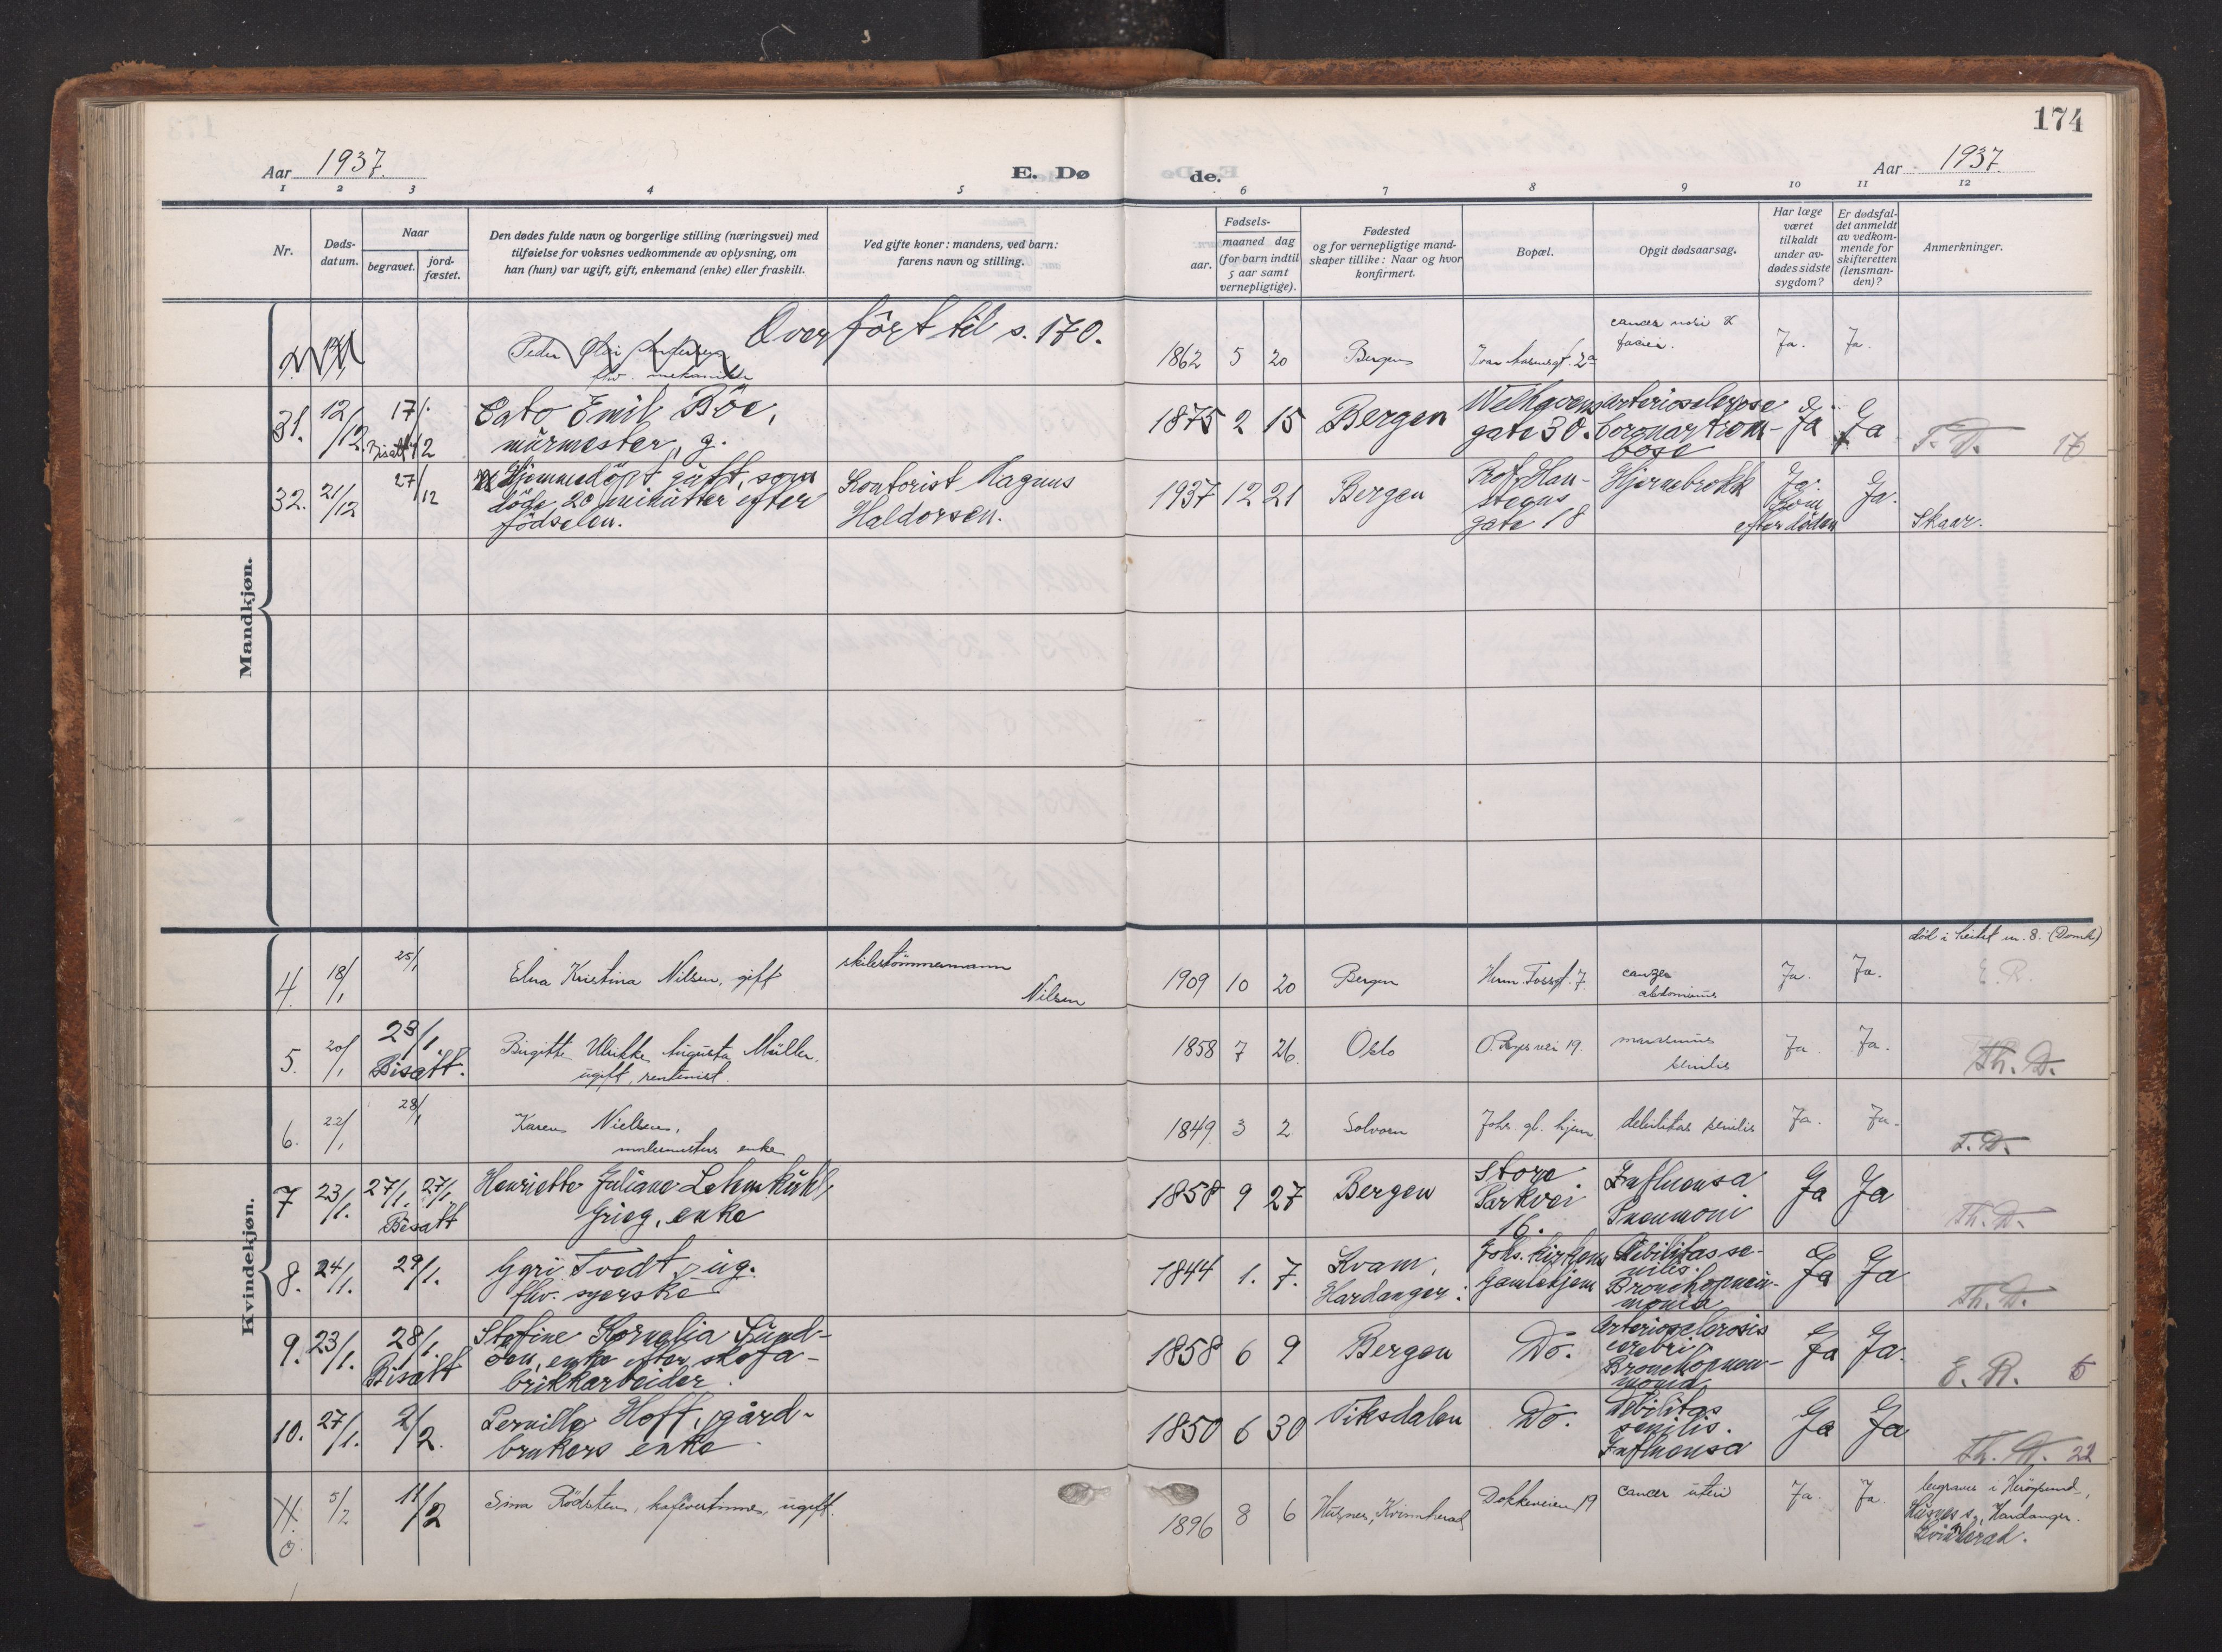 174
Aar 1937.
E. Dø
de.
Aar 1937.
1 2 3 4 5 6 7 8 9 10 11 12
Nr.
Døds-
datum.
Naar
begravet.
jord-
fæstet.
Den dødes fulde navn og borgerlige stilling (næringsvei) med
tilføielse for voksnes vedkommende av oplysning, om
han (hun) var ugift, gift, enkemand (enke) eller fraskilt.
Ved gifte koner: mandens, ved barn:
farens navn og stilling.
Fødsels-
aar.
maaned dag
(for barn indtil
5 aar samt
vernepligtige).
Fødested
og for vernepligtige mand-
skaper tillike: Naar og hvor
konfirmert.
Bopæl.
Opgit dødsaarsag.
Har læge
været
tilkaldt
under av-
dødes sidste
sygdom?
Er dødsfal-
det anmeldt
av vedkom-
mende for
skifteretten
(lensman-
den)?
Anmerkninger.
Mandkjøn.
Overført til s. 170.
Peder Olai Andersen
fhv. mekaniker
1862 5 20 Bergen Ivar Aasensgt. 2a
cancer
faciei.
Ja. Ja.
31. 12/12. 17/12 Bisatt
Cato Emil Böe,
mürmester, g.
1875 2 15 Bergen
Welhavens
gate 30.
arteriosclerose
Coronartrom-
bose
Ja Ja
T. D. 17
32. 21/12 27/12
Hjemmedöpt gütt, som
döde 20 minütter efter
födselen.
Kontorist Magnus
Haldorsen.
1937 12 21 Bergen
Prof. Han-
steens
gate 18
Hjernebrokk
Ja.
Kom
efter döden
Ja.
Skaar.
Kvindekjøn.
4. 18/1 25/1
Elna Kristina Nilsen, gift
skibstömmermann
Nilsen
1909 10 20 Bergen Herm. Fossgt. 7.
cancer
abdominis
Ja. Ja.
E. R.
5. 20/1 23/1. Bisatt.
Birgitte Ulrikke Augusta Müller.
ugift, rentenist.
1858 7 26. Oslo O. Ryes vei 19.
marasmus
senilis
Ja. Ja.
Th. D.
6. 22/1 28/1
Karen Nielsen,
malermesters enke
1849. 3 2 Solvorn Johs. gl. hjem debilitas senilis Ja. Ja.
T. D.
7 23/1. 27/1. 27/1. Bisatt
Henriette Juliane Lehmkühl,
Grieg, enke
1858 9 27 Bergen
Store
Parkvei
16.
Influensa
Pneumoni
Ja Ja
Th. D.
8. 24/1. 29/1.
Gyri Tvedt, üg.
fhv. syerske
1844 1. 7.
Kvam,
Hardanger:
Johs. kirkens
Gamlehjem
Debilitas se-
nilis.
Bronchopneu-
monia.
Ja Ja
Th. D.
9. 23/1. 28/1. Bisatt
Stefine Kornelia Sünd-
öen, enke efter skofa-
brikkarbeider.
1858 6 9 Bergen Do.
Arteriosclerosis
cerebri
Bronchopneu-
monia
Ja Ja.
E. R. 5
10. 27/1. 2/2.
Pernille Hoff, gård-
brukers enke.
1850 6 30 Viksdalen Do.
Debilitas
senilis.
Influensa
Ja Ja
Th. D. 22
5/2 11/2
Sina Rödsten, kafévertinne, ugift.
1896 8 6 Husnes, Kvinnherad Dokkeveien 19 cancer uteri Ja. Ja.
begraves i Heröysund,
Husnes s., Hardanger.
Kvinnherad.